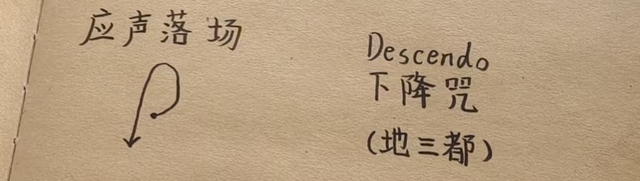 应声落场
Descendo
下降咒
(地三都)